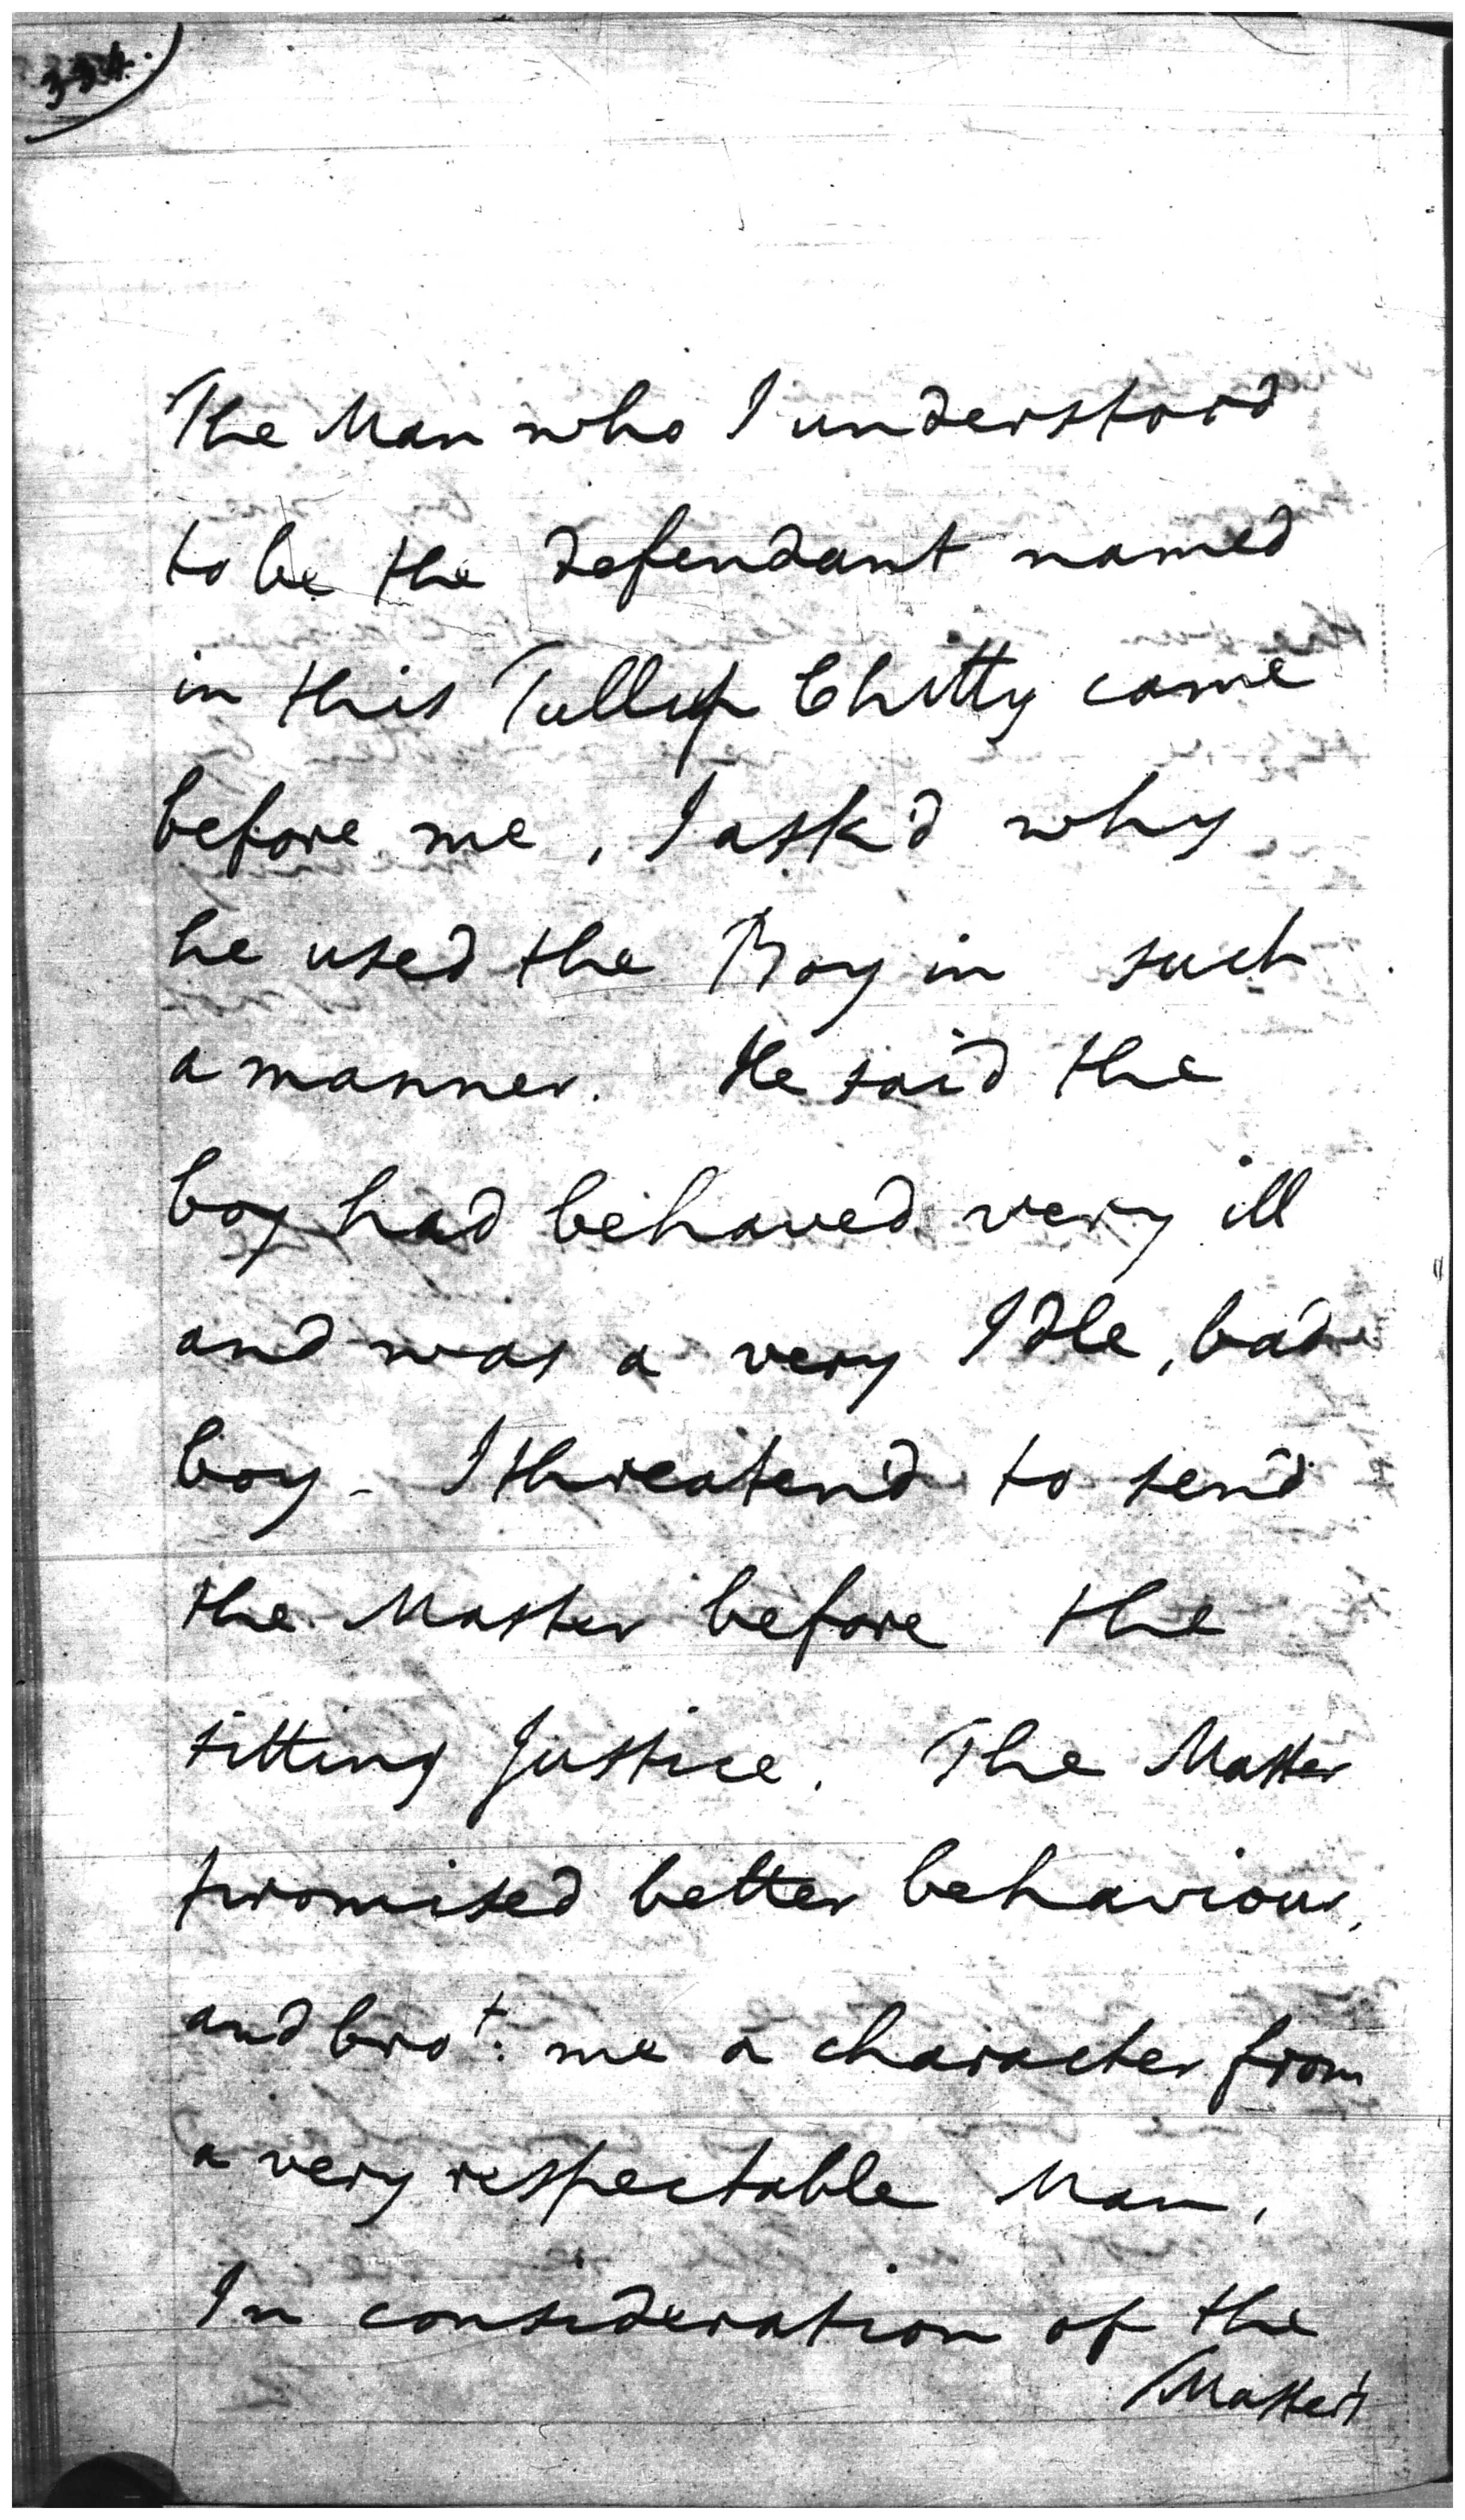 354.
The Man who I understood
to be the defendant named
in this Tullip Chitty came
before me, I ask'd why
he used the Boy in such
a manner. He said the
boy had behaved very ill
and was a very Idle, bad
boy - I threaten'd to send
the Master before the
sitting Justice. The Master
promised better behaviour,
and bro^t: me a character from
a very respectable Man,
In consideration of the
Master's